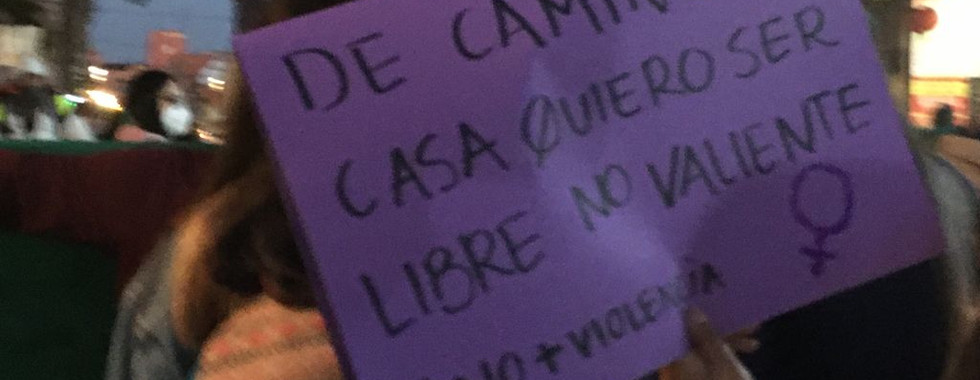 DE CAMIN
CASA QUIERO SER
LIBRE NO VALIENTE
NO + VIOLENCIA